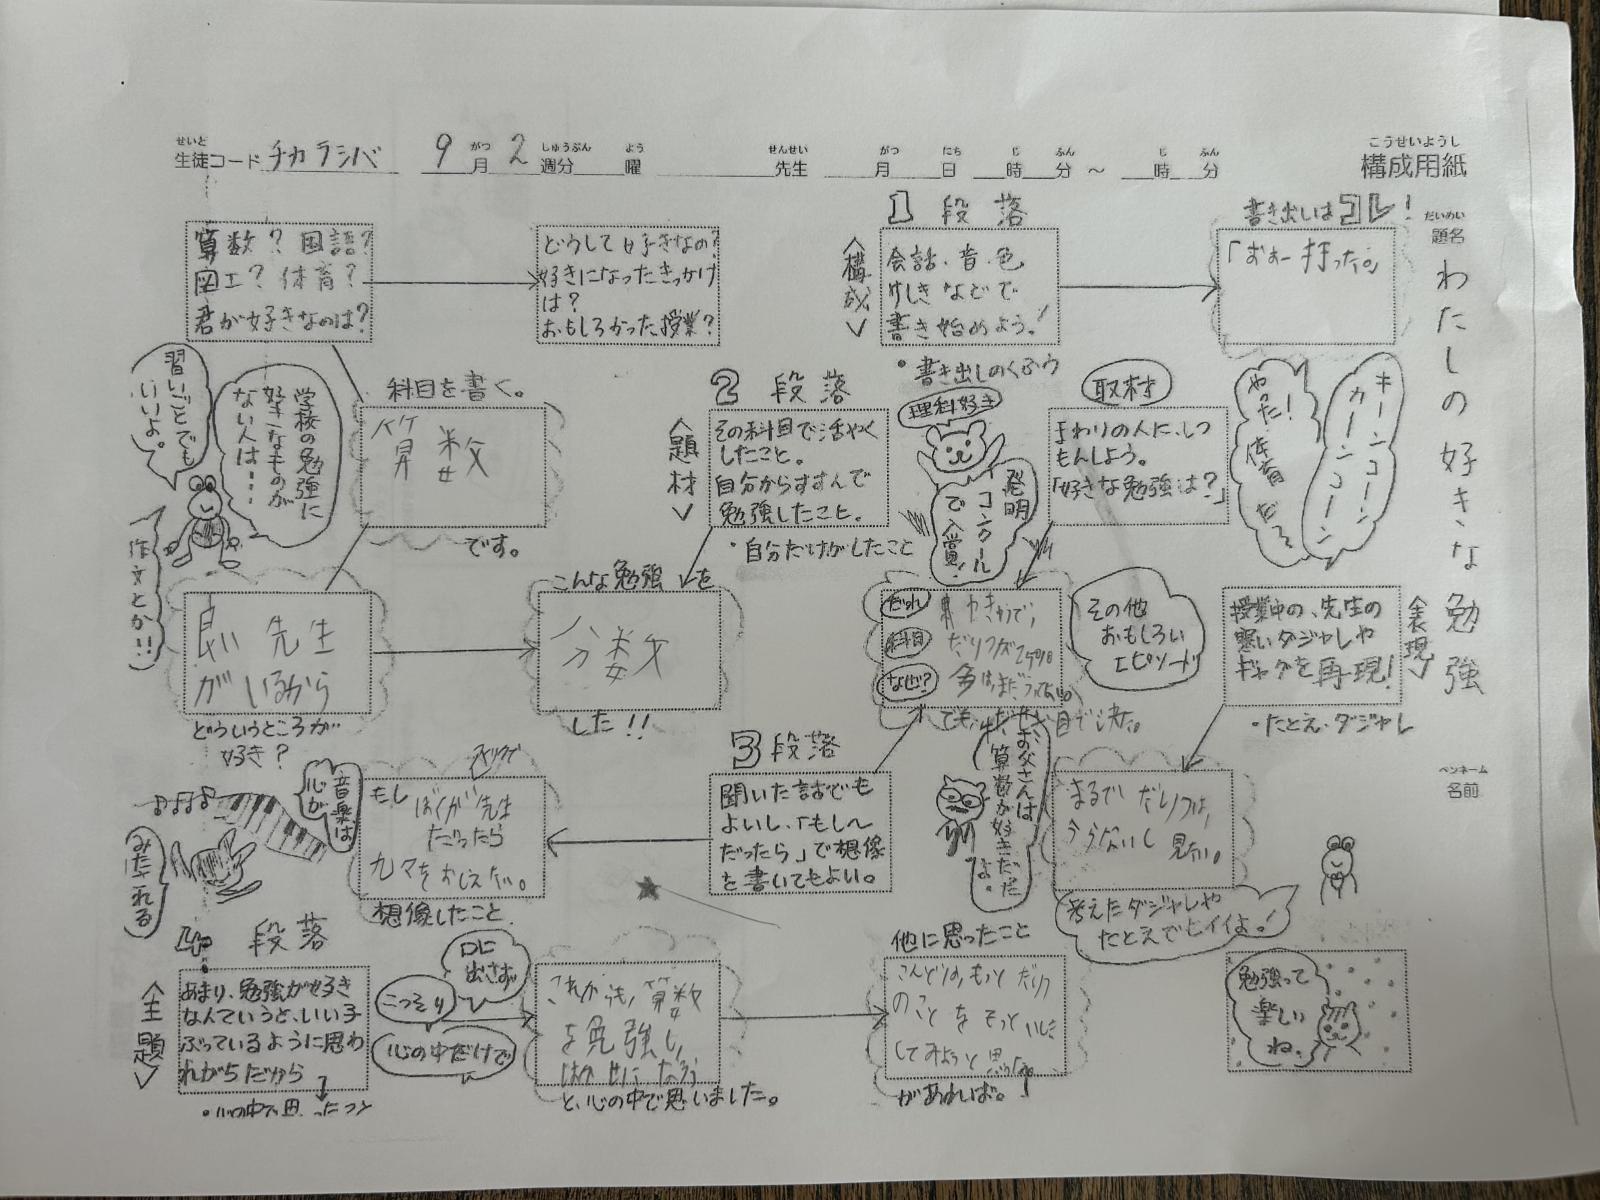 せいと
生徒コード チカラシバ 9月 2週分 曜 先生 月 日 時 分 〜 時 分
がつ しゅうぶん よう せんせい がつ にち じ ふん じ ふん
こうせいようし
構成用紙
だいめい
題名
わたしの好きな勉強
ペンネーム
名前
1段落
<構成>
会話・音・色
けしきなどで
書き始めよう!
・書き出しのくふう
書き出しはコレ!
「おぉー打った。」
キーンコーン
カーンコーン
やった!
体育だ〜
算数?国語?
図工?体育?
君が好きなのは?
どうして好きなの?
好きになったきっかけ
は?
おもしろかった授業?
科目を書く。
算数
です。
習いごとでも
いいよ。
学校の勉強に
好きなものが
ない人は・・・
作文とか!!
良い先生
がいるから
どういうところが
好き?
こんな勉強を
分数
した!!
2段落
<題材>
その科目で活やく
したこと。
自分からすすんで
勉強したこと。
・自分だけがしたこと
理科好き
発明
コンクール
で入賞!
取材
まわりの人に、しつ
もんしよう。
「好きな勉強は?」
だれ
科目
なぜ?
その他
おもしろい
エピソード
お父さんは
算数が好きだった
よ。
<表現>
授業中の、先生の
寒いダジャレや
ギャグを再現!
・たとえ・ダジャレ
まるで
考えたダジャレや
たとえでヒイイよ!
3段落
聞いた話でも
よいし、「もし〜
だったら」で想像
を書いてもよい。
もし
ぼくが先生
だったら
九九をおしえたい。
想像したこと
音楽は
心が
みたされる
4段落
<主題>
あまり、勉強が好き
なんていうと、いい子
ぶっているように思わ
れがちだから
・心の中で思ったこと
口に
出さず
こっそり
心の中だけで
これからも、算数
を勉強し、
はかせになろう
と、心の中で思いました。
他に思ったこと
こんどは、もっと
のことを
があれば。
勉強って
楽しい
ね。